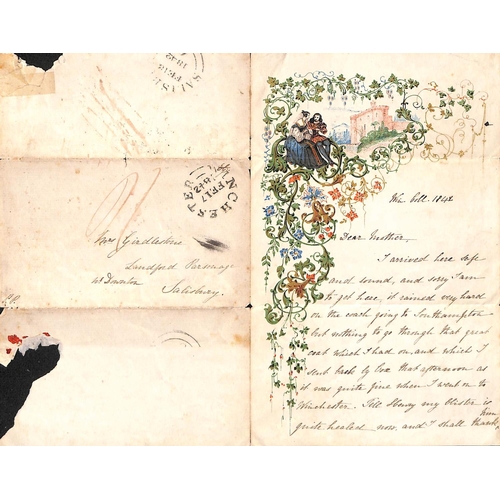 SALISB
FE 18
1842
WINCHESTER
FE 17
1842
Mrs Girdlestone
Landford Parsonage
Nr Downton
Salisbury.
Win. Coll. 1842
Dear Mother,
I arrived here safe
and sound, and sorry I am
to get here, it rained very hard
on the coach going to Southampton
but nothing to go through that great
coat which I had on, and which I
sent back by Cox that afternoon as
it was quite fine when I went on to
Winchester. Tell Henry my blister is
quite healed now, and I shall thank
him